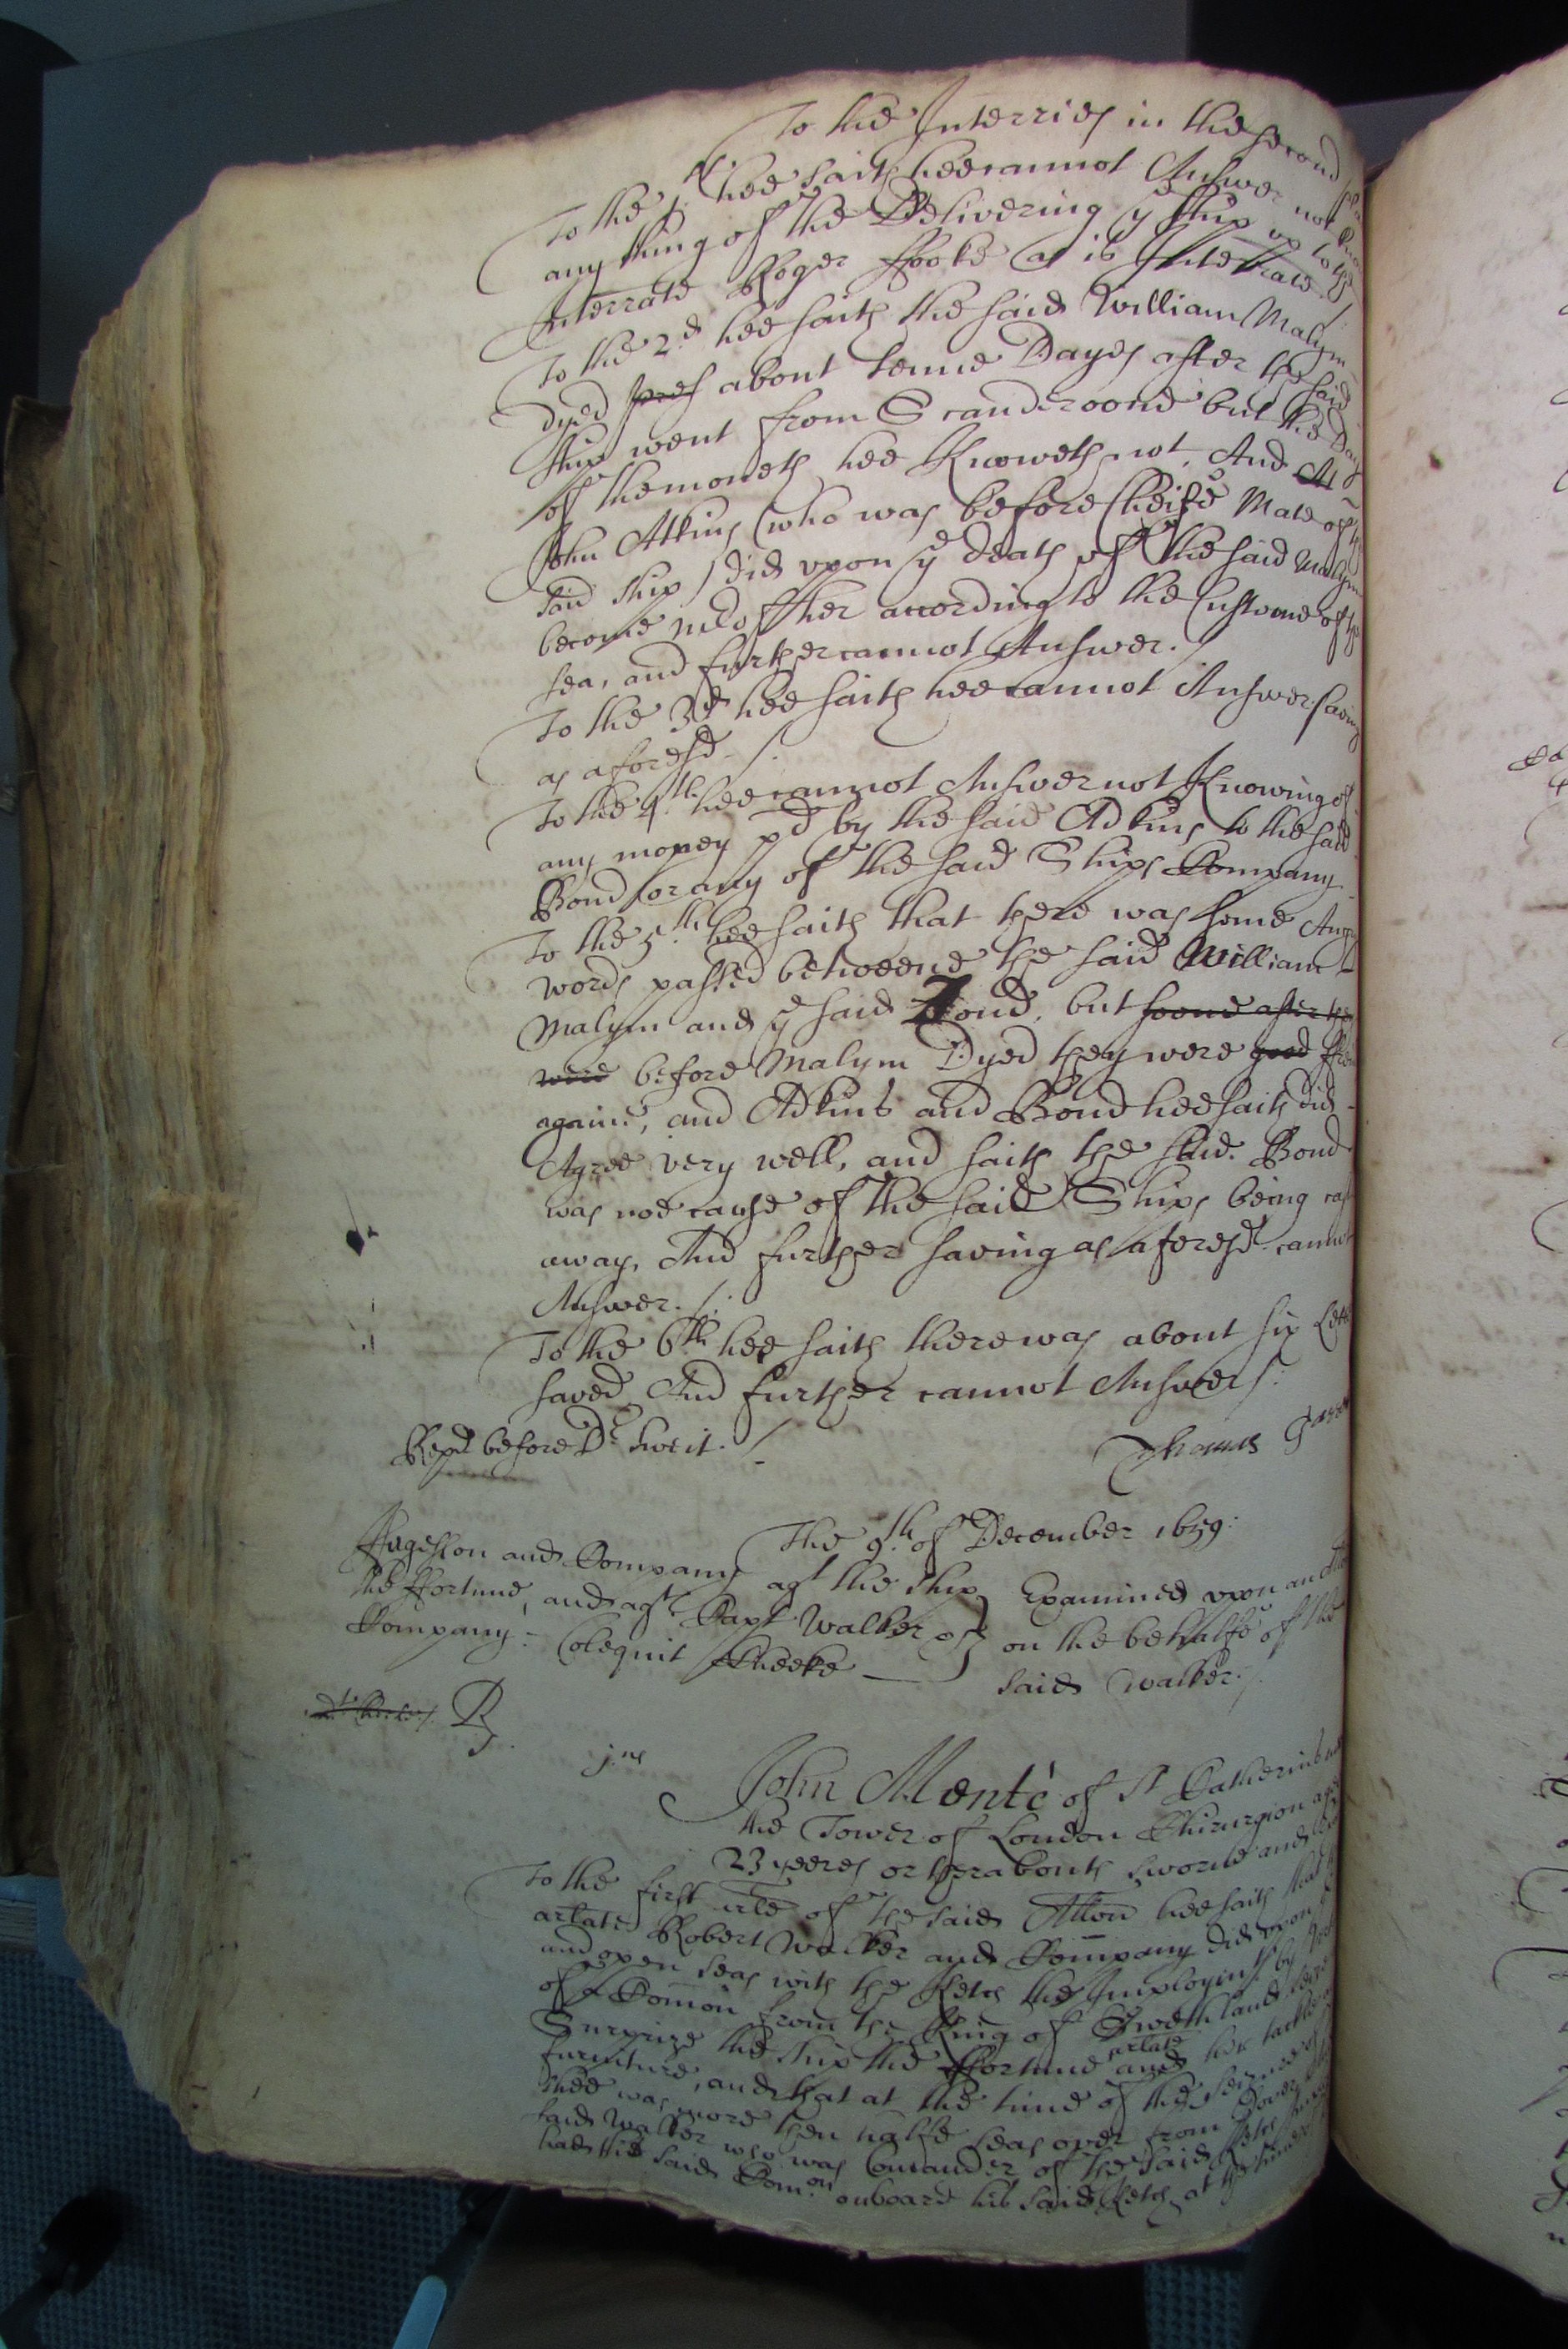 To the Interries in the second
To the j.t hee saith hee cannot Answer not
any thing of the Delivering ye ship up to the
Interrate Roger ffooke as is Interrate./
To the 2d hee saith the said William Malym
dyed about tenne Dayes after the said
ship went from Scanderoone but the Day
of the moneth hee knoweth not, And
John Atkins (who was before cheife Mate of the
said ship) did upon ye death of the said Malym
become Mr of her according to the Custome of the
sea, and further cannot Answer./
To the 3d hee saith hee cannot Answer saving
as aforesd./
To the 4th hee cannot Answer not knowing of
any money pd by the said Adkins to the said
Bond or any of the said Ships Company
To the 5th hee saith that there was some
words passed betweene the said William
Malym and ye said Bond, but soone after they
were before Malym Dyed they were good
againe, and Adkins and Bond hee saith did
Agree very well, and saith the said Bond
was noe cause of the said Ships being cast
away, And further saving as aforesd cannot
Answer./.
To the 6th hee saith there was about six
saved, And further cannot Answer/.
Repd before Dr Sweit./
Thomas
The 9th of December 1659:
and Company agt the ship
the ffortune, and agt Capt Walker &
Company. Colequit Cheeke
Examined upon an
on the behalfe of the
said Walker./.
dt. Cheeke/. B
j.us
John Mente of St Catherins
the Tower of London Chirurgion
23 yeeres or therabouts sworne and
To the first arle of the said Atton hee saith that
arlate Robert Walker and Company did upon
and open seas with the Ketch the Imployint by
of a Comon from the King of Swethland
Surprize the ship the ffortune arlate and her tackle
furniture, and that at the time of the seizure
shee was more then halfe seas over from Dover
said Walker who was Comander of the said Ketch
had the said Comon onboard his said Ketch at the time